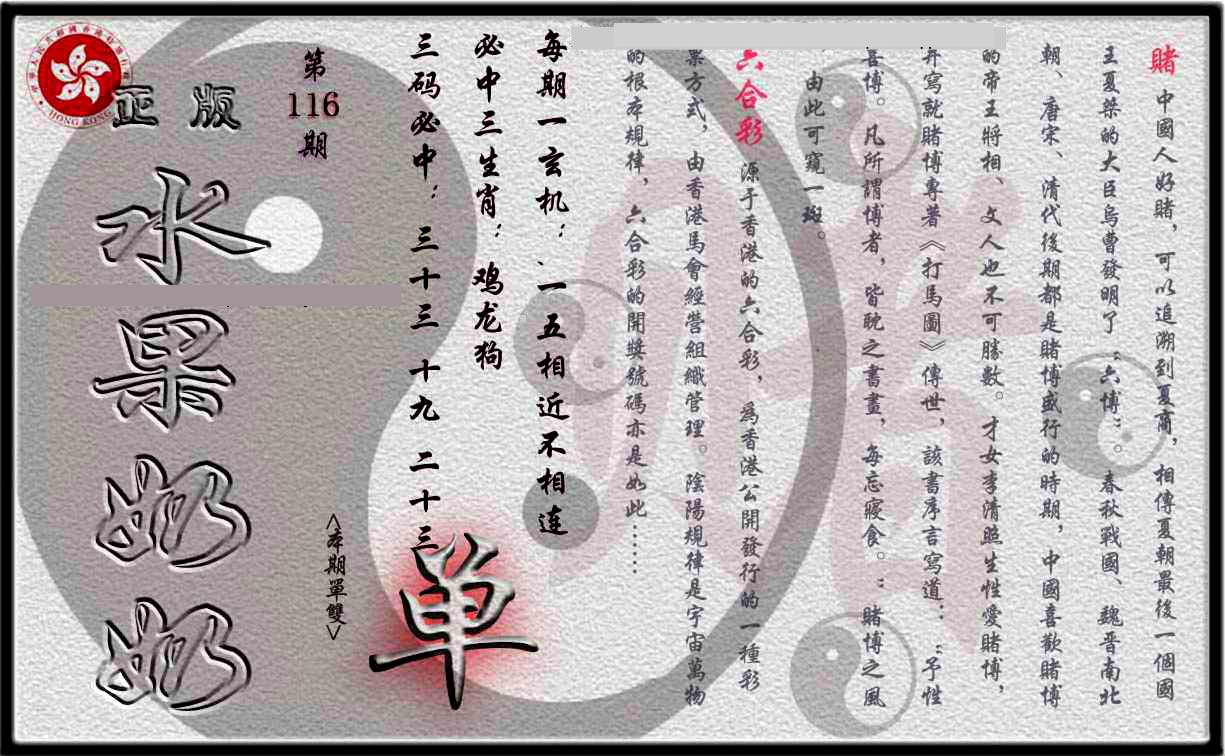 賭 中國人好賭，可以追溯到夏商，相傳夏朝最後一個國
王夏桀的大臣烏曹發明了“六博”。春秋戰國、魏晋南北
朝、唐宋、清代後期都是賭博盛行的時期，中國喜歡賭博
的帝王將相、文人也不可勝數。才女李清照生性愛賭博，
并寫就賭博專著《打馬圖》傳世，該書序言寫道：“予性
喜博。凡所謂博者，皆耽之書畫，每忘寢食。”賭博之風
，由此可窺一斑。
六合彩 源于香港的六合彩，為香港公開發行的一種彩
票方式，由香港馬會經營組織管理。陰陽規律是宇宙萬物
的根本規律，六合彩的開獎號碼亦是如此……
每期一玄机：一五相近不相连
必中三生肖：鸡龙狗
三码必中：三十三 十九 二十三
单
<本期單雙>
第
116
期
正版
水果奶奶
HONG KONG